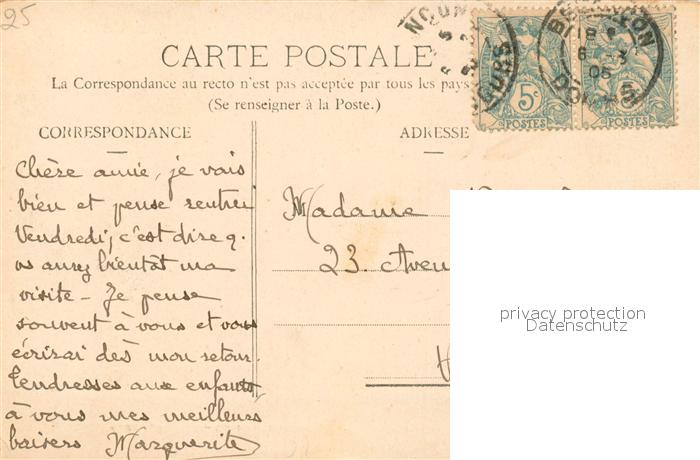 25
CARTE POSTALE
La Correspondance au recto n'est pas acceptée par tous les pays
(Se renseigner à la Poste.)
CORRESPONDANCE
ADRESSE
5c
POSTES
POSTES
Chère amie, je vais
bien et pense rentrer
Vendredi, c'est dire q.
vs aurez bientôt ma
visite - Je pense
souvent à vous et vous
écrirai dès mon retour.
Tendresses aux enfants
à vous mes meilleurs
baisers Marguerite
Madame
23. Aven
privacy protection
Datenschutz